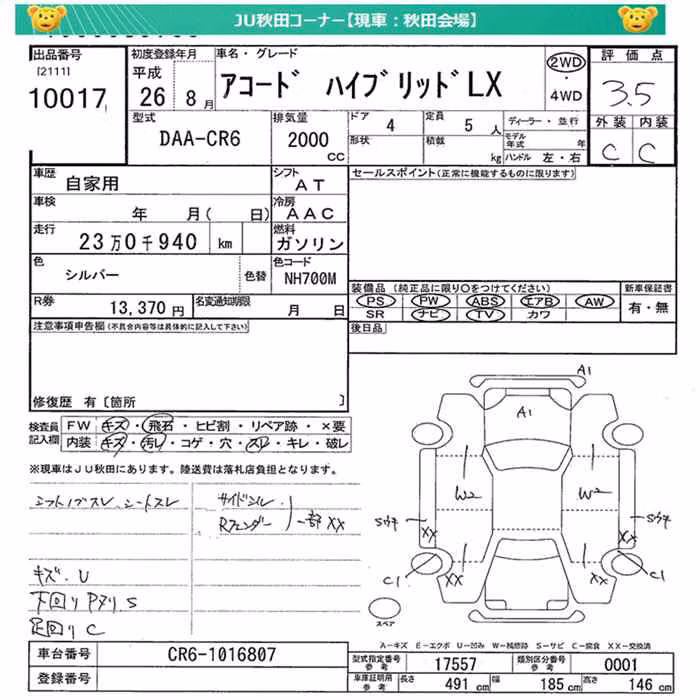 JU秋田コーナー【現車：秋田会場】
出品番号
[2111]
10017
初度登録年月
平成
26 8月
車名・グレード
アコード ハイブリッドLX
2WD
・
4WD
評価点
3.5
外装 内装
C C
型式
DAA-CR6
排気量
2000
CC
ドア 4
定員 5 人
形状
積載
kg
ディーラー・並行
モデル年式 年
ハンドル 左・右
車歴
自家用
シフト
AT
車検
年 月( 日)
冷房
AAC
走行
23万0千940 km
燃料
ガソリン
色
シルバー
色替
色コード
NH700M
R券
13,370円
名変通知期限
月 日
セールスポイント(正常に機能するものに限ります)
装備品 (純正品に限り○をつけてください)
PS PW ABS エアB AW
SR ナビ TV カワ
新車保証書
有・無
後日品
注意事項申告欄(不具合内容等は具体的に記入して下さい)
修復歴 有[箇所 ]
検査員記入欄
FW キズ・飛石・ヒビ割・リペア跡・×要
内装 キズ・汚レ・コゲ・穴・スレ・キレ・破レ
※現車はJU秋田にあります。陸送費は落札店負担となります。
シフトノブスレ、シートスレ
サイドシル
Rフェンダー
一部XX
キズ・U
下回りPヌリS
足回りC
A1
A1
W2
W2
Sウチ
Sウチ
XX
XX
C1
C1
XX
XX
スペア
A-キズ E-エクボ U-凹み W-補修跡 S-サビ C-腐食 XX-交換済
車台番号
CR6-1016807
登録番号
型式指定番号
参考
17557
類別区分番号
参考
0001
車庫証明用
参考
長さ 491 cm
幅 185 cm
高さ 146 cm